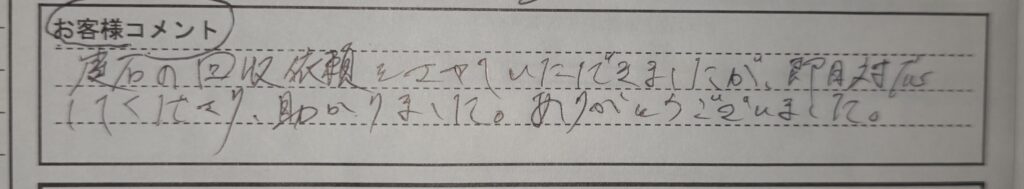 お客様コメント
廃石の回収依頼をさせていただきましたが、即日対応
してくださり、助かりました。ありがとうございました。